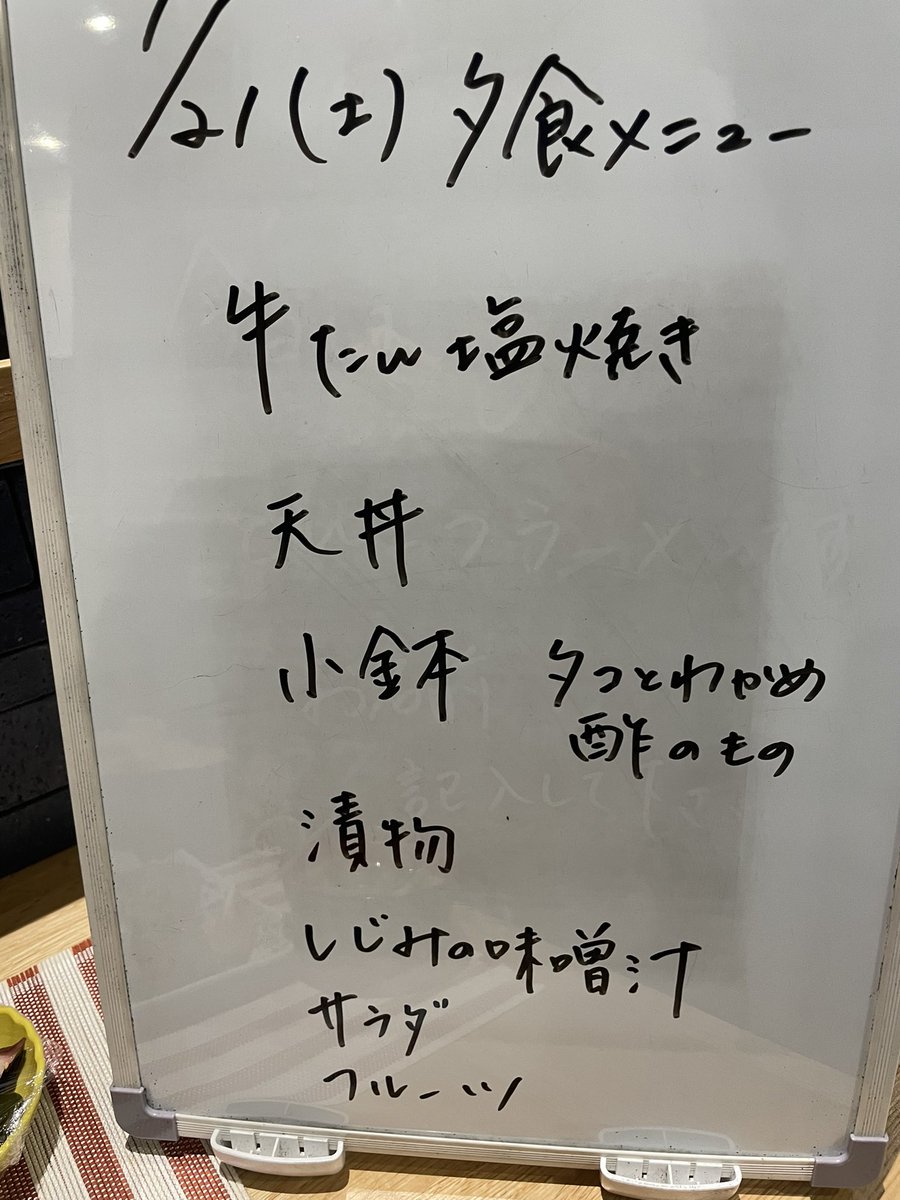 /21(土)夕食メニュー
牛たん塩焼き
天丼
小鉢 タコとわかめ
酢のもの
漬物
しじみの味噌汁
サラダ
フルーツ